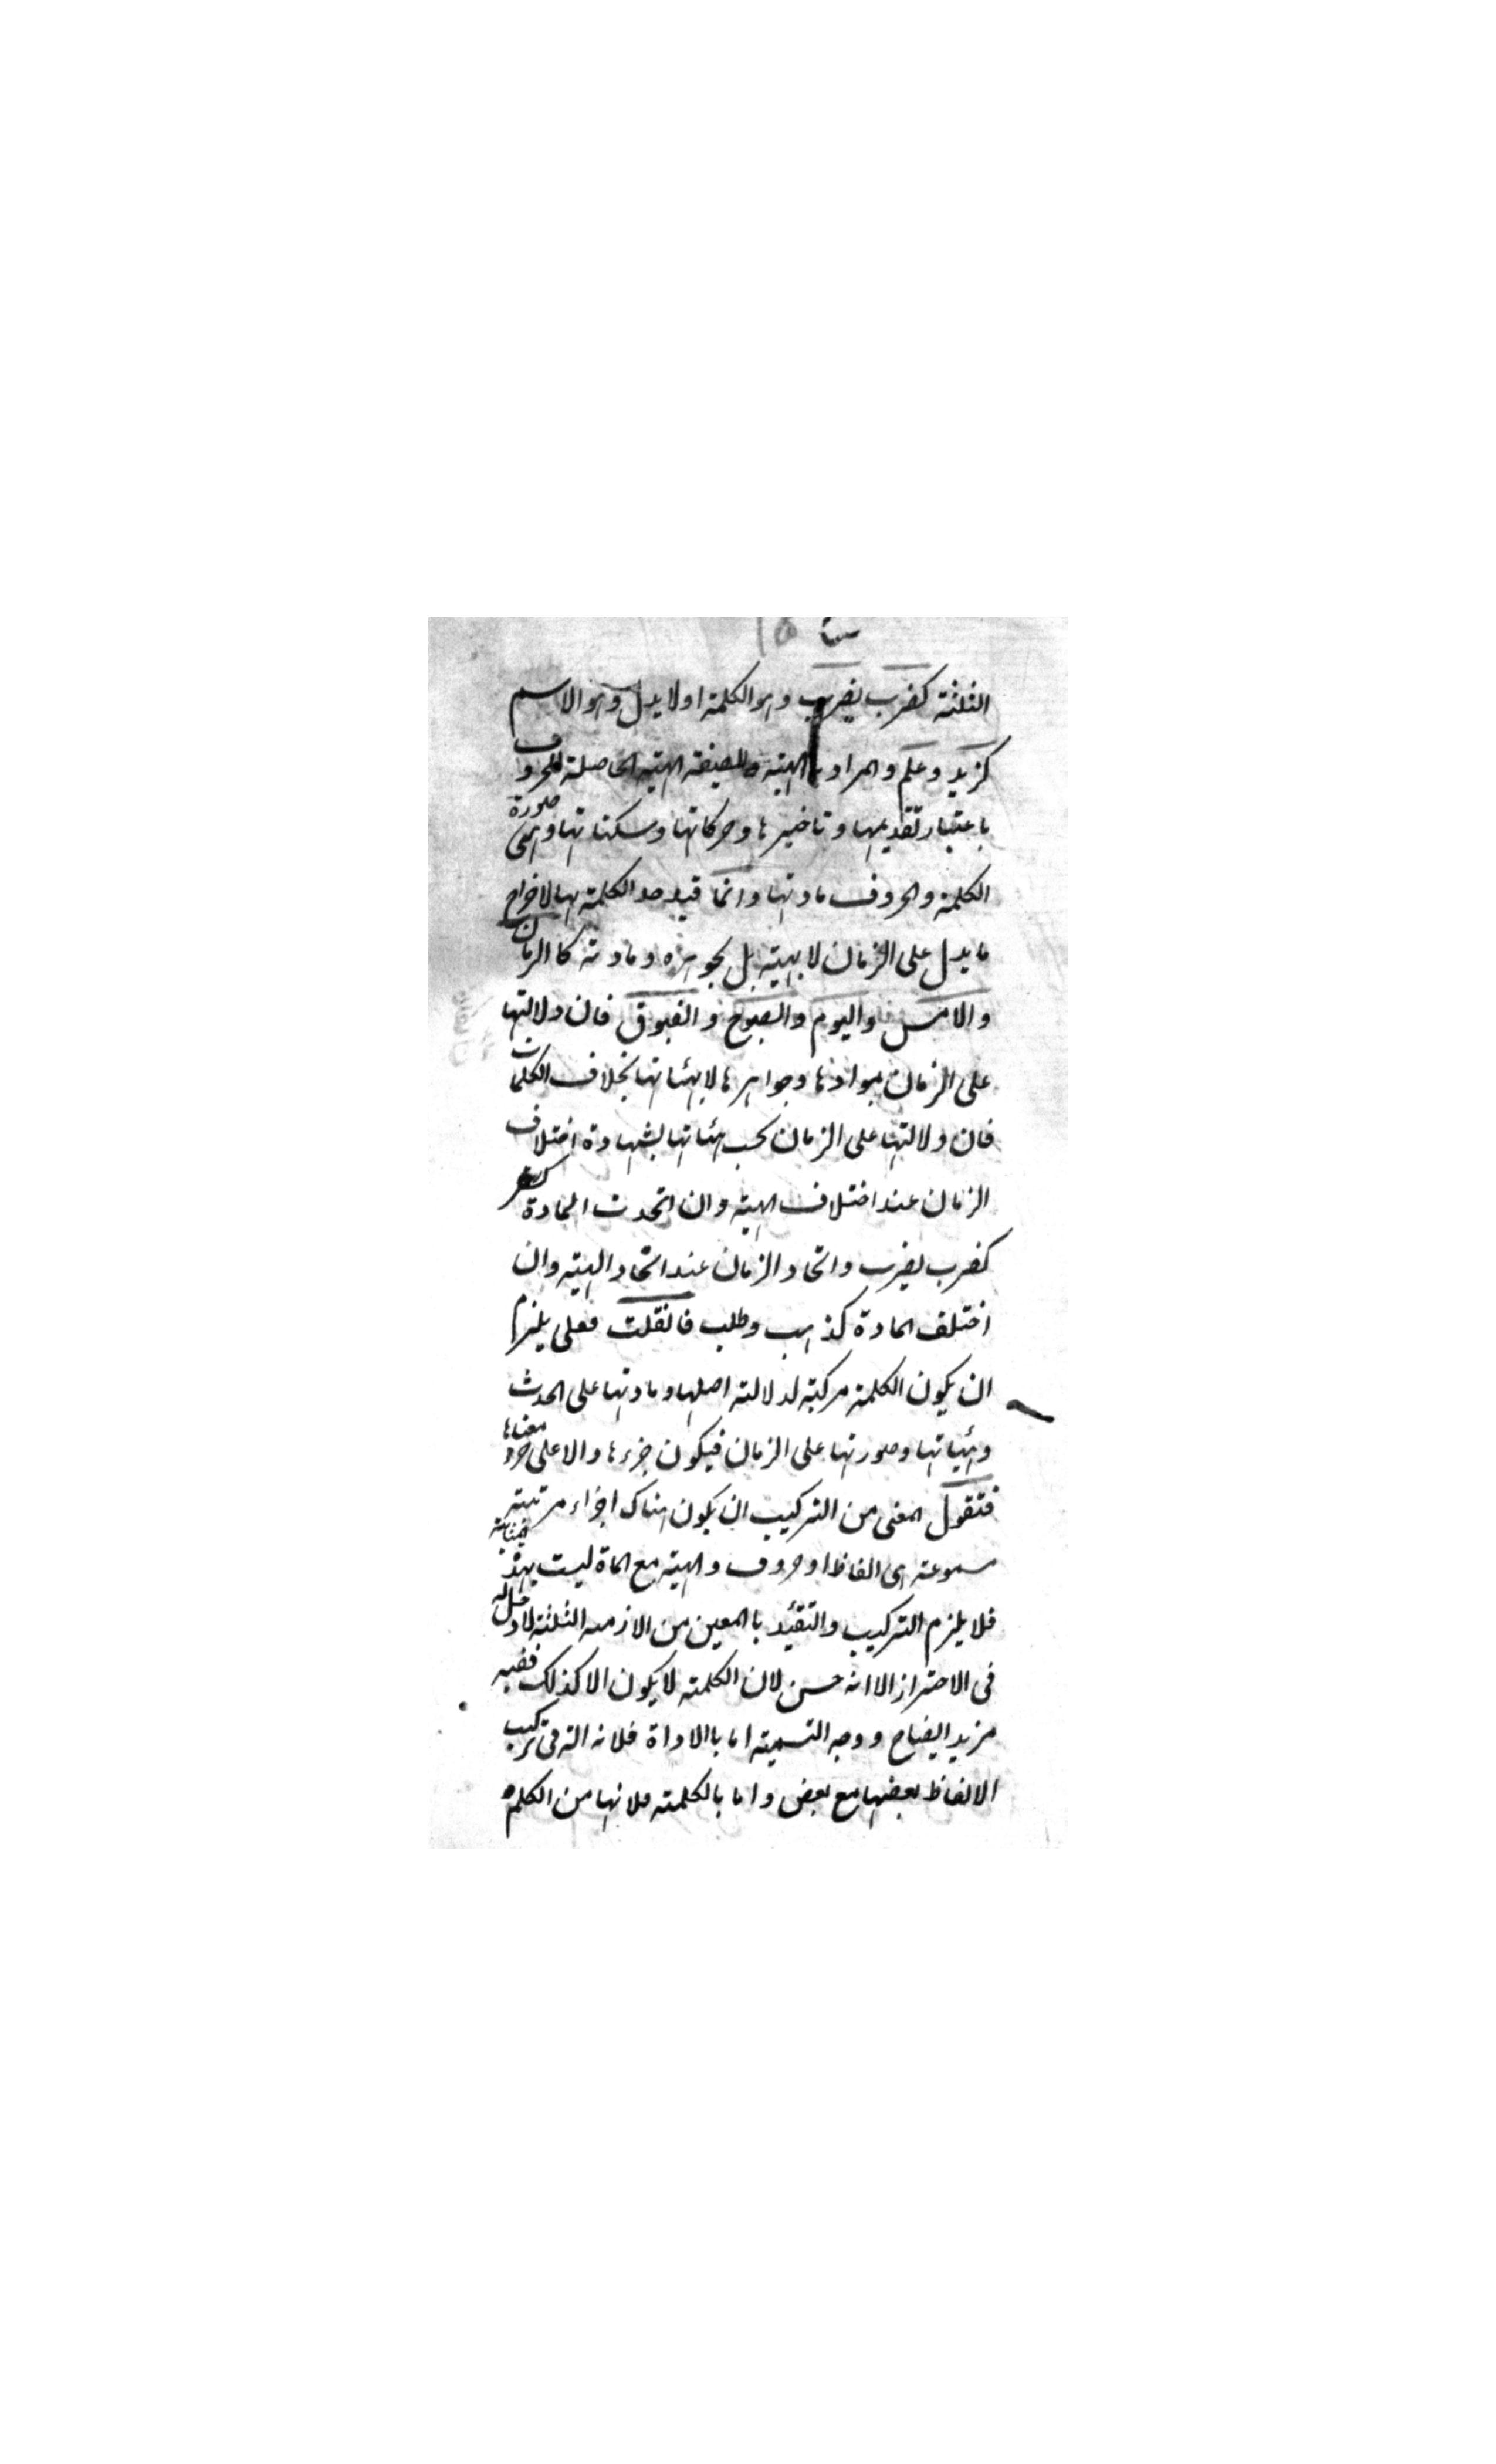 الثلثة كضرب يضرب وهو الكلمة اولا يدل وهو الاسم
كزيد وعلم والمراد بالهيئة والصيغة الهيئة الحاصلة للحروف
باعتبار تقديمها وتاخيرها وحركاتها وسكناتها وهى صورة
الكلمة والحروف مادتها وانما قيد حد الكلمة بها لاخراج
ما يدل على الزمان لا بهيئته بل بجوهره ومادته كالزمان
والامس واليوم والصبوح والغبوق فان دلالتها
على الزمان بموادها وجواهرها لا بهيئاتها بخلاف الكلمات
فان دلالتها على الزمان بحسب هيئاتها بشهادة اختلاف
الزمان عند اختلاف الهيئة وان اتحدت المادة
كضرب يضرب واتحاد الزمان عند اتحاد الهيئة وان
اختلف المادة كذهب وطلب فانقلت فعلى يلزم
ان يكون الكلمة مركبة لدلالته اصلها ومادتها على الحدث
وهيئاتها وصورتها على الزمان فيكون جزءها دالا على جزء معناها
فنقول المعنى من التركيب ان يكون هناك اجزاء مرتبته
مسموعته هى الفاظ او حروف والهيئة مع المادة ليست بهذه المثابة
فلا يلزم التركيب والتقئيد بالمعين من الازمنه الثلثة لا دخل له
فى الاحتراز الا انه حسن لان الكلمته لا يكون الا كذلك ففيه
مزيد ايضاح ووجه التسميته اما بالاداة فلانه الته فى تركيب
الالفاظ بعضها مع بعض واما بالكلمته فلانها من الكلم